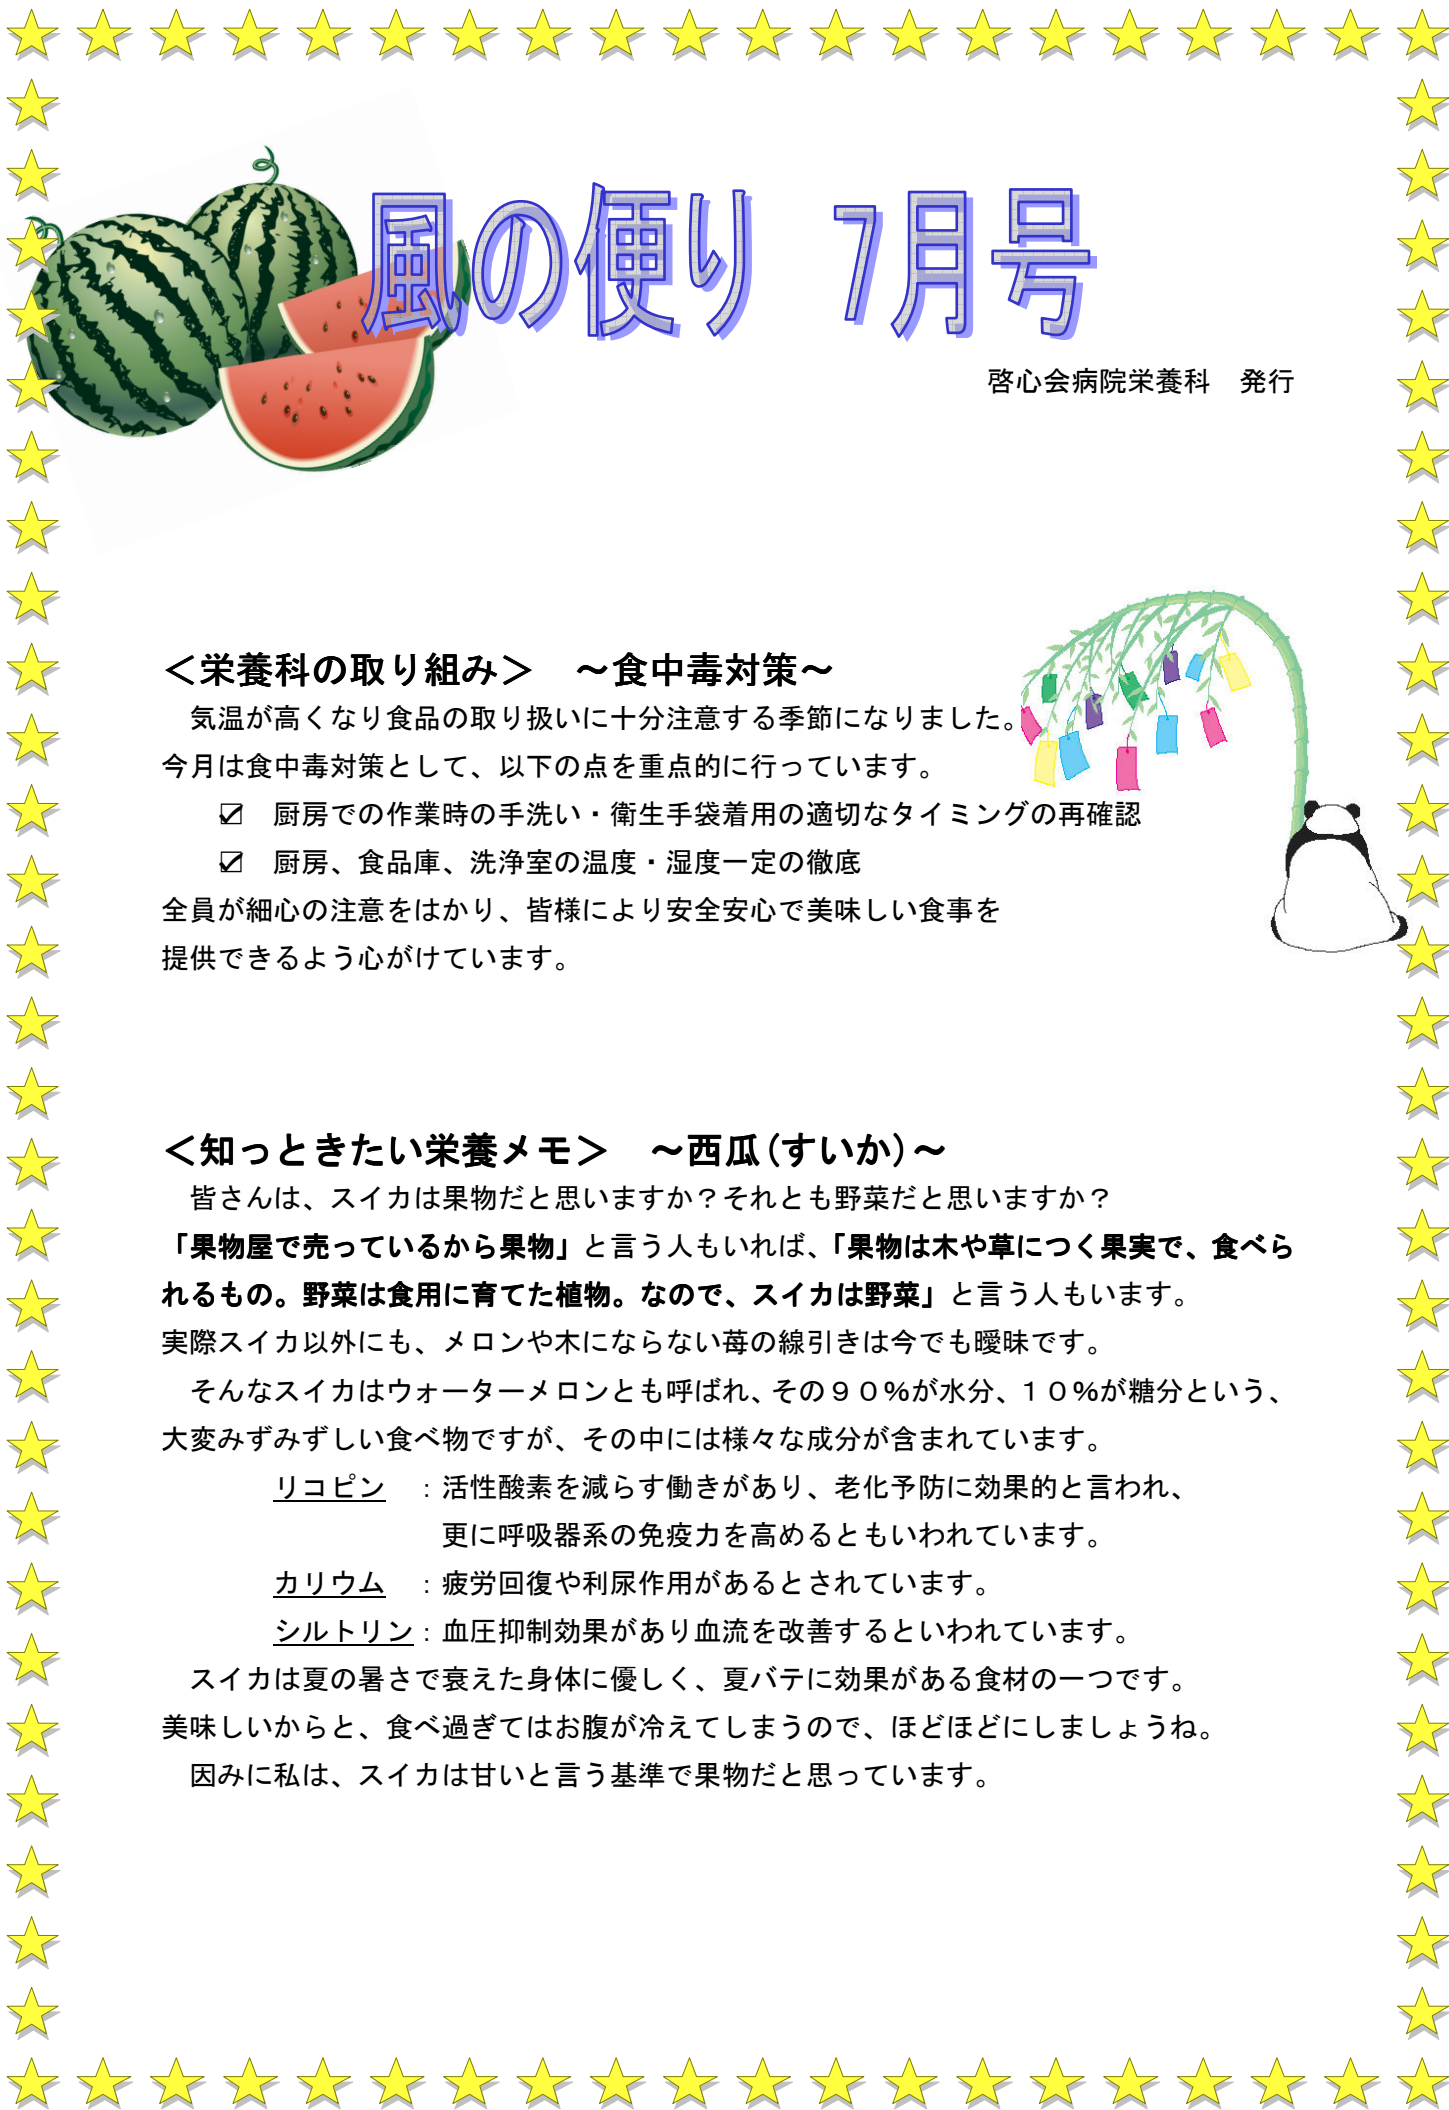 風の便り　7月号
啓心会病院栄養科　発行
＜栄養科の取り組み＞　～食中毒対策～
気温が高くなり食品の取り扱いに十分注意する季節になりました。
今月は食中毒対策として、以下の点を重点的に行っています。
☑　厨房での作業時の手洗い・衛生手袋着用の適切なタイミングの再確認
☑　厨房、食品庫、洗浄室の温度・湿度一定の徹底
全員が細心の注意をはかり、皆様により安全安心で美味しい食事を
提供できるよう心がけています。
＜知っときたい栄養メモ＞　～西瓜(すいか)～
皆さんは、スイカは果物だと思いますか？それとも野菜だと思いますか？
「果物屋で売っているから果物」と言う人もいれば、「果物は木や草につく果実で、食べら
れるもの。野菜は食用に育てた植物。なので、スイカは野菜」と言う人もいます。
実際スイカ以外にも、メロンや木にならない苺の線引きは今でも曖昧です。
そんなスイカはウォーターメロンとも呼ばれ、その９０％が水分、１０％が糖分という、
大変みずみずしい食べ物ですが、その中には様々な成分が含まれています。
リコピン　：活性酸素を減らす働きがあり、老化予防に効果的と言われ、
更に呼吸器系の免疫力を高めるともいわれています。
カリウム　：疲労回復や利尿作用があるとされています。
シルトリン：血圧抑制効果があり血流を改善するといわれています。
スイカは夏の暑さで衰えた身体に優しく、夏バテに効果がある食材の一つです。
美味しいからと、食べ過ぎてはお腹が冷えてしまうので、ほどほどにしましょうね。
因みに私は、スイカは甘いと言う基準で果物だと思っています。